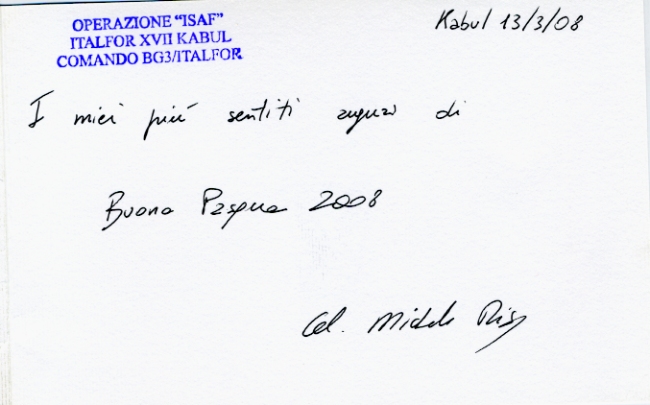 OPERAZIONE “ISAF”
ITALFOR XVII KABUL
COMANDO BG3/ITALFOR
Kabul 13/3/08
I miei più sentiti auguri di
Buona Pasqua 2008
Col. Michele